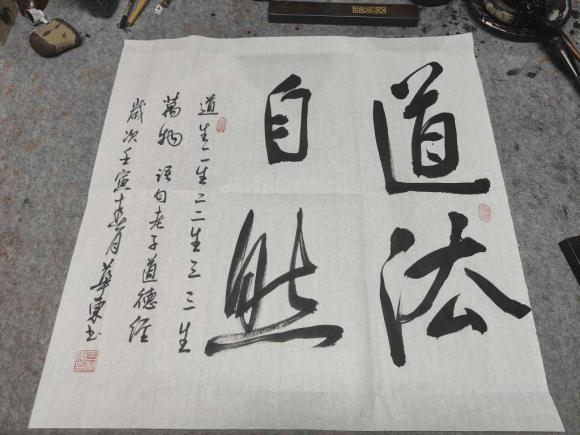 道法
自然
道生一一生二二生三三生
萬物 语句老子道德经
歲次壬寅春月華東书